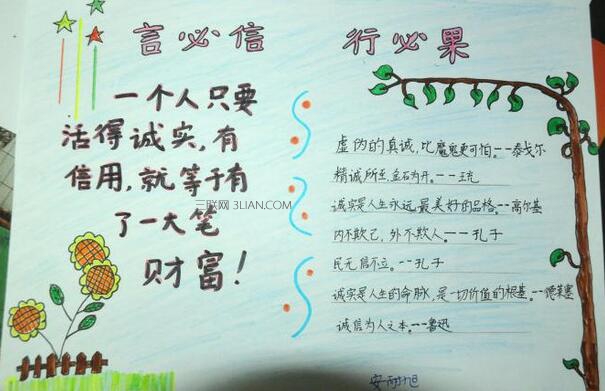 言必信 行必果
一个人只要
活得诚实，有
信用，就等于有
了一大笔
财富！
三联网 3LIAN.COM
虚伪的真诚，比魔鬼更可怕。--泰戈尔
精诚所至，金石为开。--王充
诚实是人生永远最美好的品格。--高尔基
内不欺己，外不欺人。---孔子
民无信不立。--孔子
诚实是人生的命脉，是一切价值的根基。--德莱塞
诚信为人之本。--鲁迅